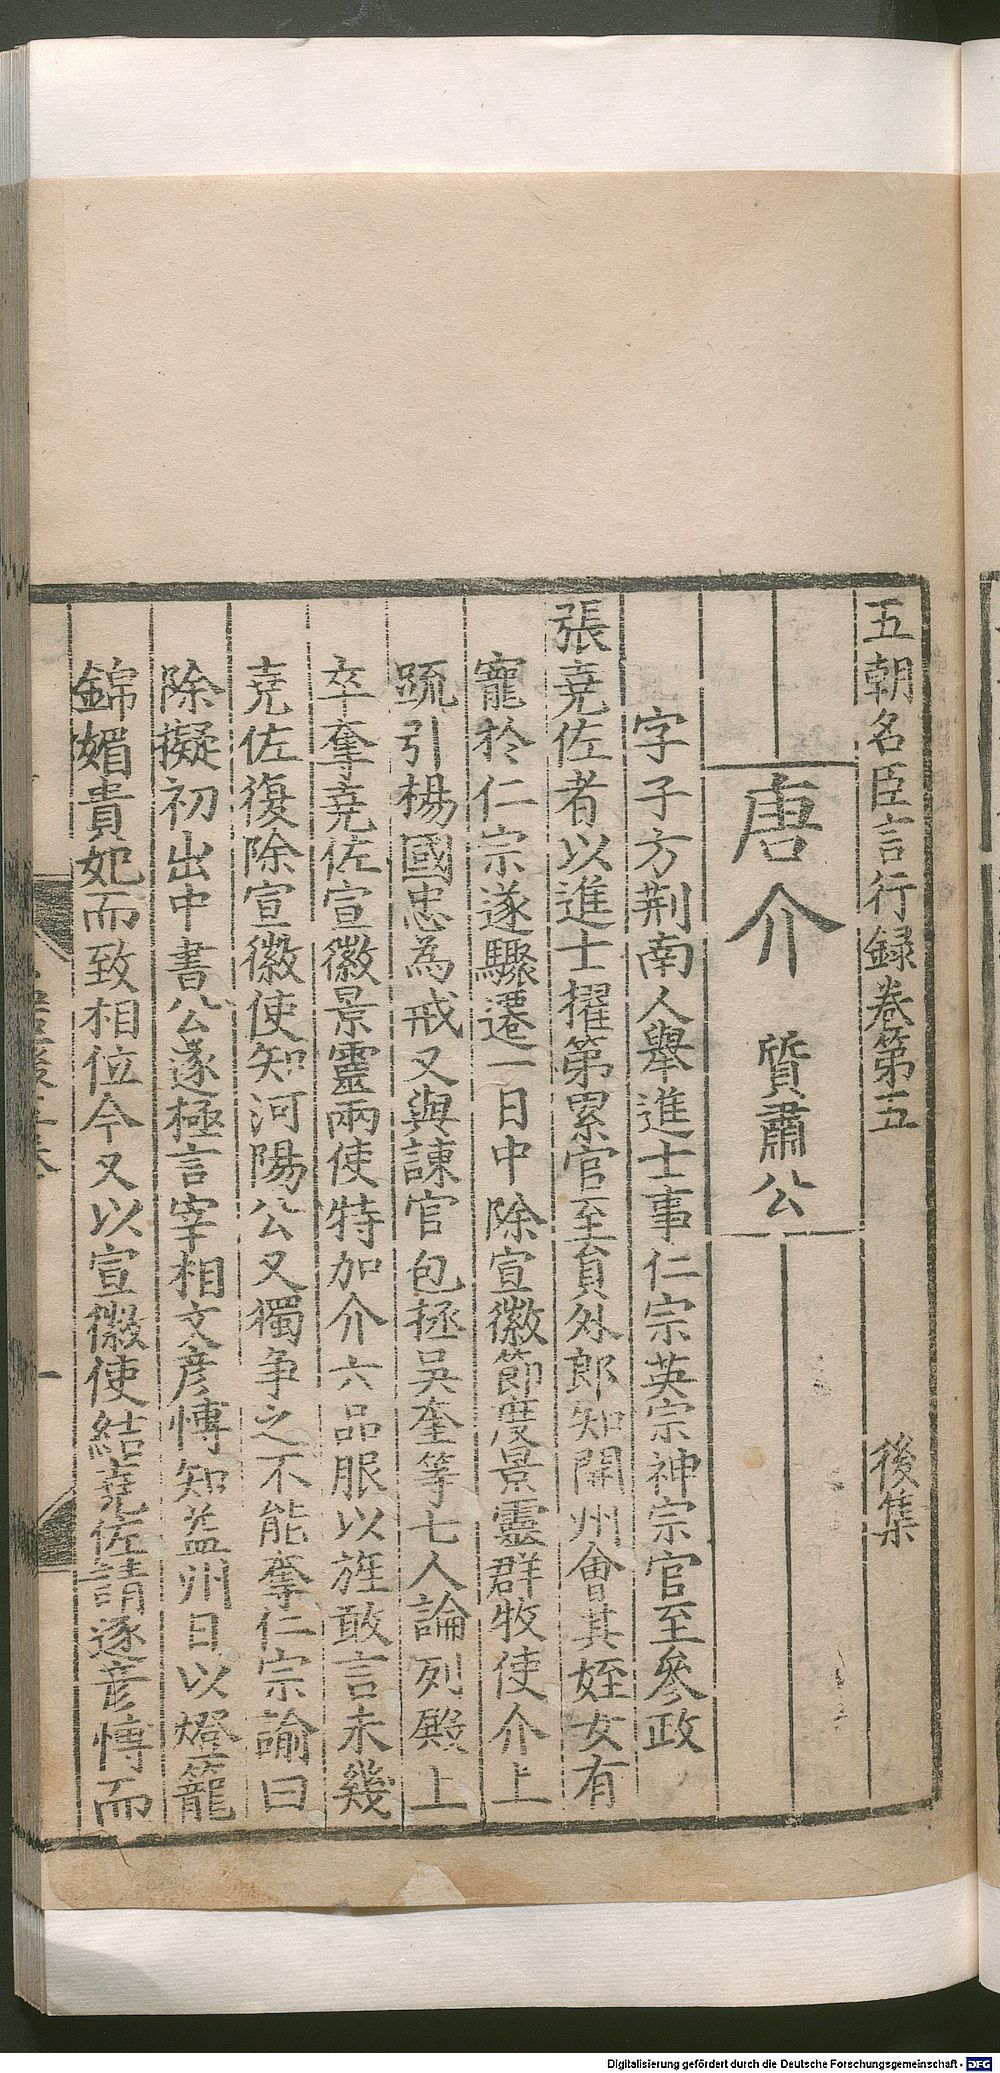 五朝名臣言行録卷第五　後集
唐介　質肅公
字子方荆南人舉進士事仁宗英宗神宗官至參政
張堯佐者以進士擢第累官至貟外郎知開州會其姪女有
寵於仁宗遂驟遷一日中除宣徽節度景靈群牧使介上
䟽引楊國忠為戒又與諫官包拯吳奎等七人論列殿上
卒奪堯佐宣徽景靈兩使特加介六品服以旌敢言未幾
堯佐復除宣徽使知河陽公又獨争之不能奪仁宗諭曰
除擬初出中書公遂極言宰相文彦愽知益州日以燈籠
錦媚貴妃而致相位今又以宣徽使結堯佐請逐彦愽而
Digitalisierung gefördert durch die Deutsche Forschungsgemeinschaft - DFG